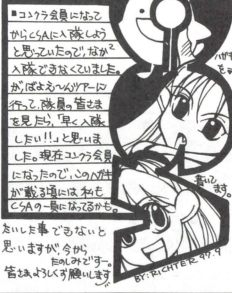 ■コンクラ会員になって
からCSAに入隊しよう
と思っていたので、なかなか
入隊できなくていました。
が、ばとえ〜んツアーに
行って、隊員の皆さま
を見たら、「早く入隊
したい!!」と思いま
した。現在コンクラ会員
になったので、このハガキ
が載る頃には、私も
CSAの一員になってるかも。
たいした事できないと
思いますが、今から
たのしみです…。
皆さま、よろしくお願いします
ハガキ
書いて
ます。
BY:RICHTER 97.9